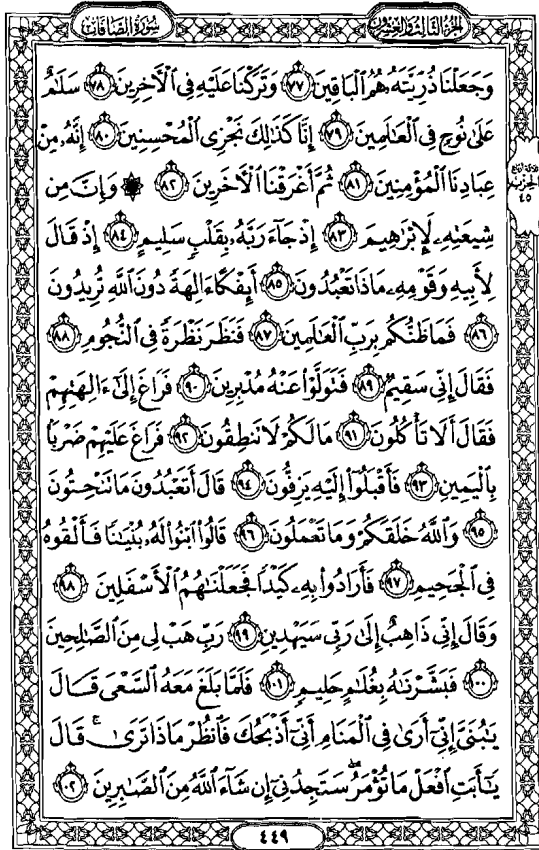 الجزء الثالث والعشرون
سورة الصافات
وَجَعَلْنَا ذُرِّيَّتَهُۥ هُمُ ٱلْبَاقِينَ ٧٧ وَتَرَكْنَا عَلَيْهِ فِى ٱلْآخِرِينَ ٧٨ سَلَٰمٌ
عَلَىٰ نُوحٍ فِى ٱلْعَٰلَمِينَ ٧٩ إِنَّا كَذَٰلِكَ نَجْزِى ٱلْمُحْسِنِينَ ٨٠ إِنَّهُۥ مِنْ
عِبَادِنَا ٱلْمُؤْمِنِينَ ٨١ ثُمَّ أَغْرَقْنَا ٱلْآخَرِينَ ٨٢ ۞ وَإِنَّ مِن
شِيعَتِهِۦ لَإِبْرَٰهِيمَ ٨٣ إِذْ جَآءَ رَبَّهُۥ بِقَلْبٍ سَلِيمٍ ٨٤ إِذْ قَالَ
لِأَبِيهِ وَقَوْمِهِۦ مَاذَا تَعْبُدُونَ ٨٥ أَئِفْكًا ءَالِهَةً دُونَ ٱللَّهِ تُرِيدُونَ
٨٦ فَمَا ظَنُّكُم بِرَبِّ ٱلْعَٰلَمِينَ ٨٧ فَنَظَرَ نَظْرَةً فِى ٱلنُّجُومِ ٨٨
فَقَالَ إِنِّى سَقِيمٌ ٨٩ فَتَوَلَّوْا۟ عَنْهُ مُدْبِرِينَ ٩٠ فَرَاغَ إِلَىٰٓ ءَالِهَتِهِمْ
فَقَالَ أَلَا تَأْكُلُونَ ٩١ مَا لَكُمْ لَا تَنطِقُونَ ٩٢ فَرَاغَ عَلَيْهِمْ ضَرْبًۢا
بِٱلْيَمِينِ ٩٣ فَأَقْبَلُوٓا۟ إِلَيْهِ يَزِفُّونَ ٩٤ قَالَ أَتَعْبُدُونَ مَا تَنْحِتُونَ
٩٥ وَٱللَّهُ خَلَقَكُمْ وَمَا تَعْمَلُونَ ٩٦ قَالُوا۟ ٱبْنُوا۟ لَهُۥ بُنْيَٰنًا فَأَلْقُوهُ
فِى ٱلْجَحِيمِ ٩٧ فَأَرَادُوا۟ بِهِۦ كَيْدًا فَجَعَلْنَٰهُمُ ٱلْأَسْفَلِينَ ٩٨
وَقَالَ إِنِّى ذَاهِبٌ إِلَىٰ رَبِّى سَيَهْدِينِ ٩٩ رَبِّ هَبْ لِى مِنَ ٱلصَّٰلِحِينَ
١٠٠ فَبَشَّرْنَٰهُ بِغُلَٰمٍ حَلِيمٍ ١٠١ فَلَمَّا بَلَغَ مَعَهُ ٱلسَّعْىَ قَالَ
يَٰبُنَىَّ إِنِّىٓ أَرَىٰ فِى ٱلْمَنَامِ أَنِّىٓ أَذْبَحُكَ فَٱنظُرْ مَاذَا تَرَىٰ ۚ قَالَ
يَٰٓأَبَتِ ٱفْعَلْ مَا تُؤْمَرُ ۖ سَتَجِدُنِىٓ إِن شَآءَ ٱللَّهُ مِنَ ٱلصَّٰبِرِينَ ١٠٢
الحزب
٤٥
٤٤٩